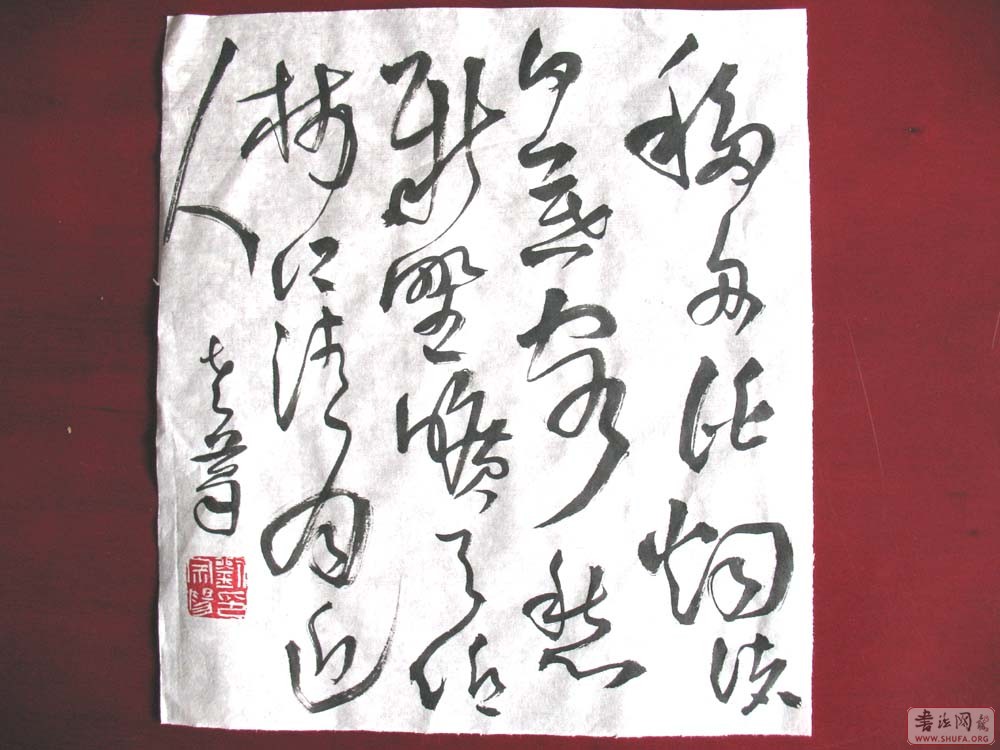 移舟泊烟渚
日暮客愁
新野曠天低
树江清月近
人
書法网
WWW.SHUFA.ORG